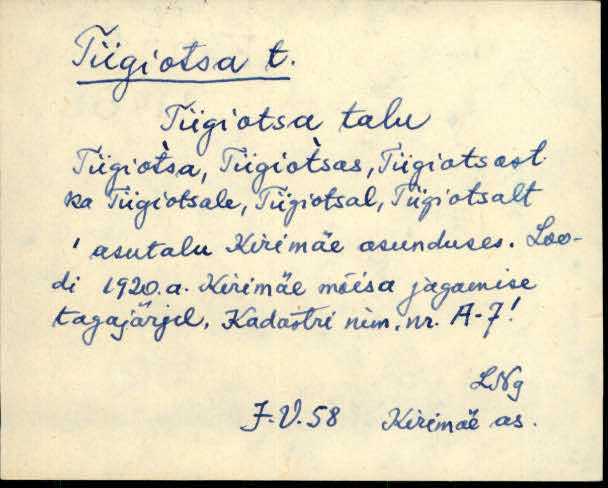 Tiigiotsa t.
Tiigiotsa talu
Tiigiot̀sa, Tiigiot̀sas, Tiigiotsast
ka Tiigiotsale, Tiigiotsal, Tiigiotsalt
' asutalu Kirimäe asunduses. Loo-
di 1920.a. Kirimäe mõisa jagamise
tagajärjel. Kadastri nim. nr. A-7!
LNg
J.V.58 Kirimäe as.